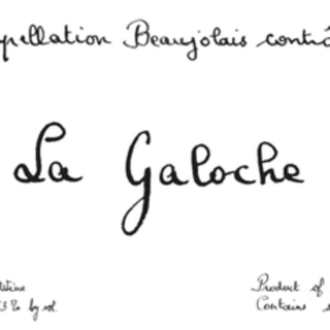 ppellation Beaujolais contrô
La Galoche
Product of
Contains